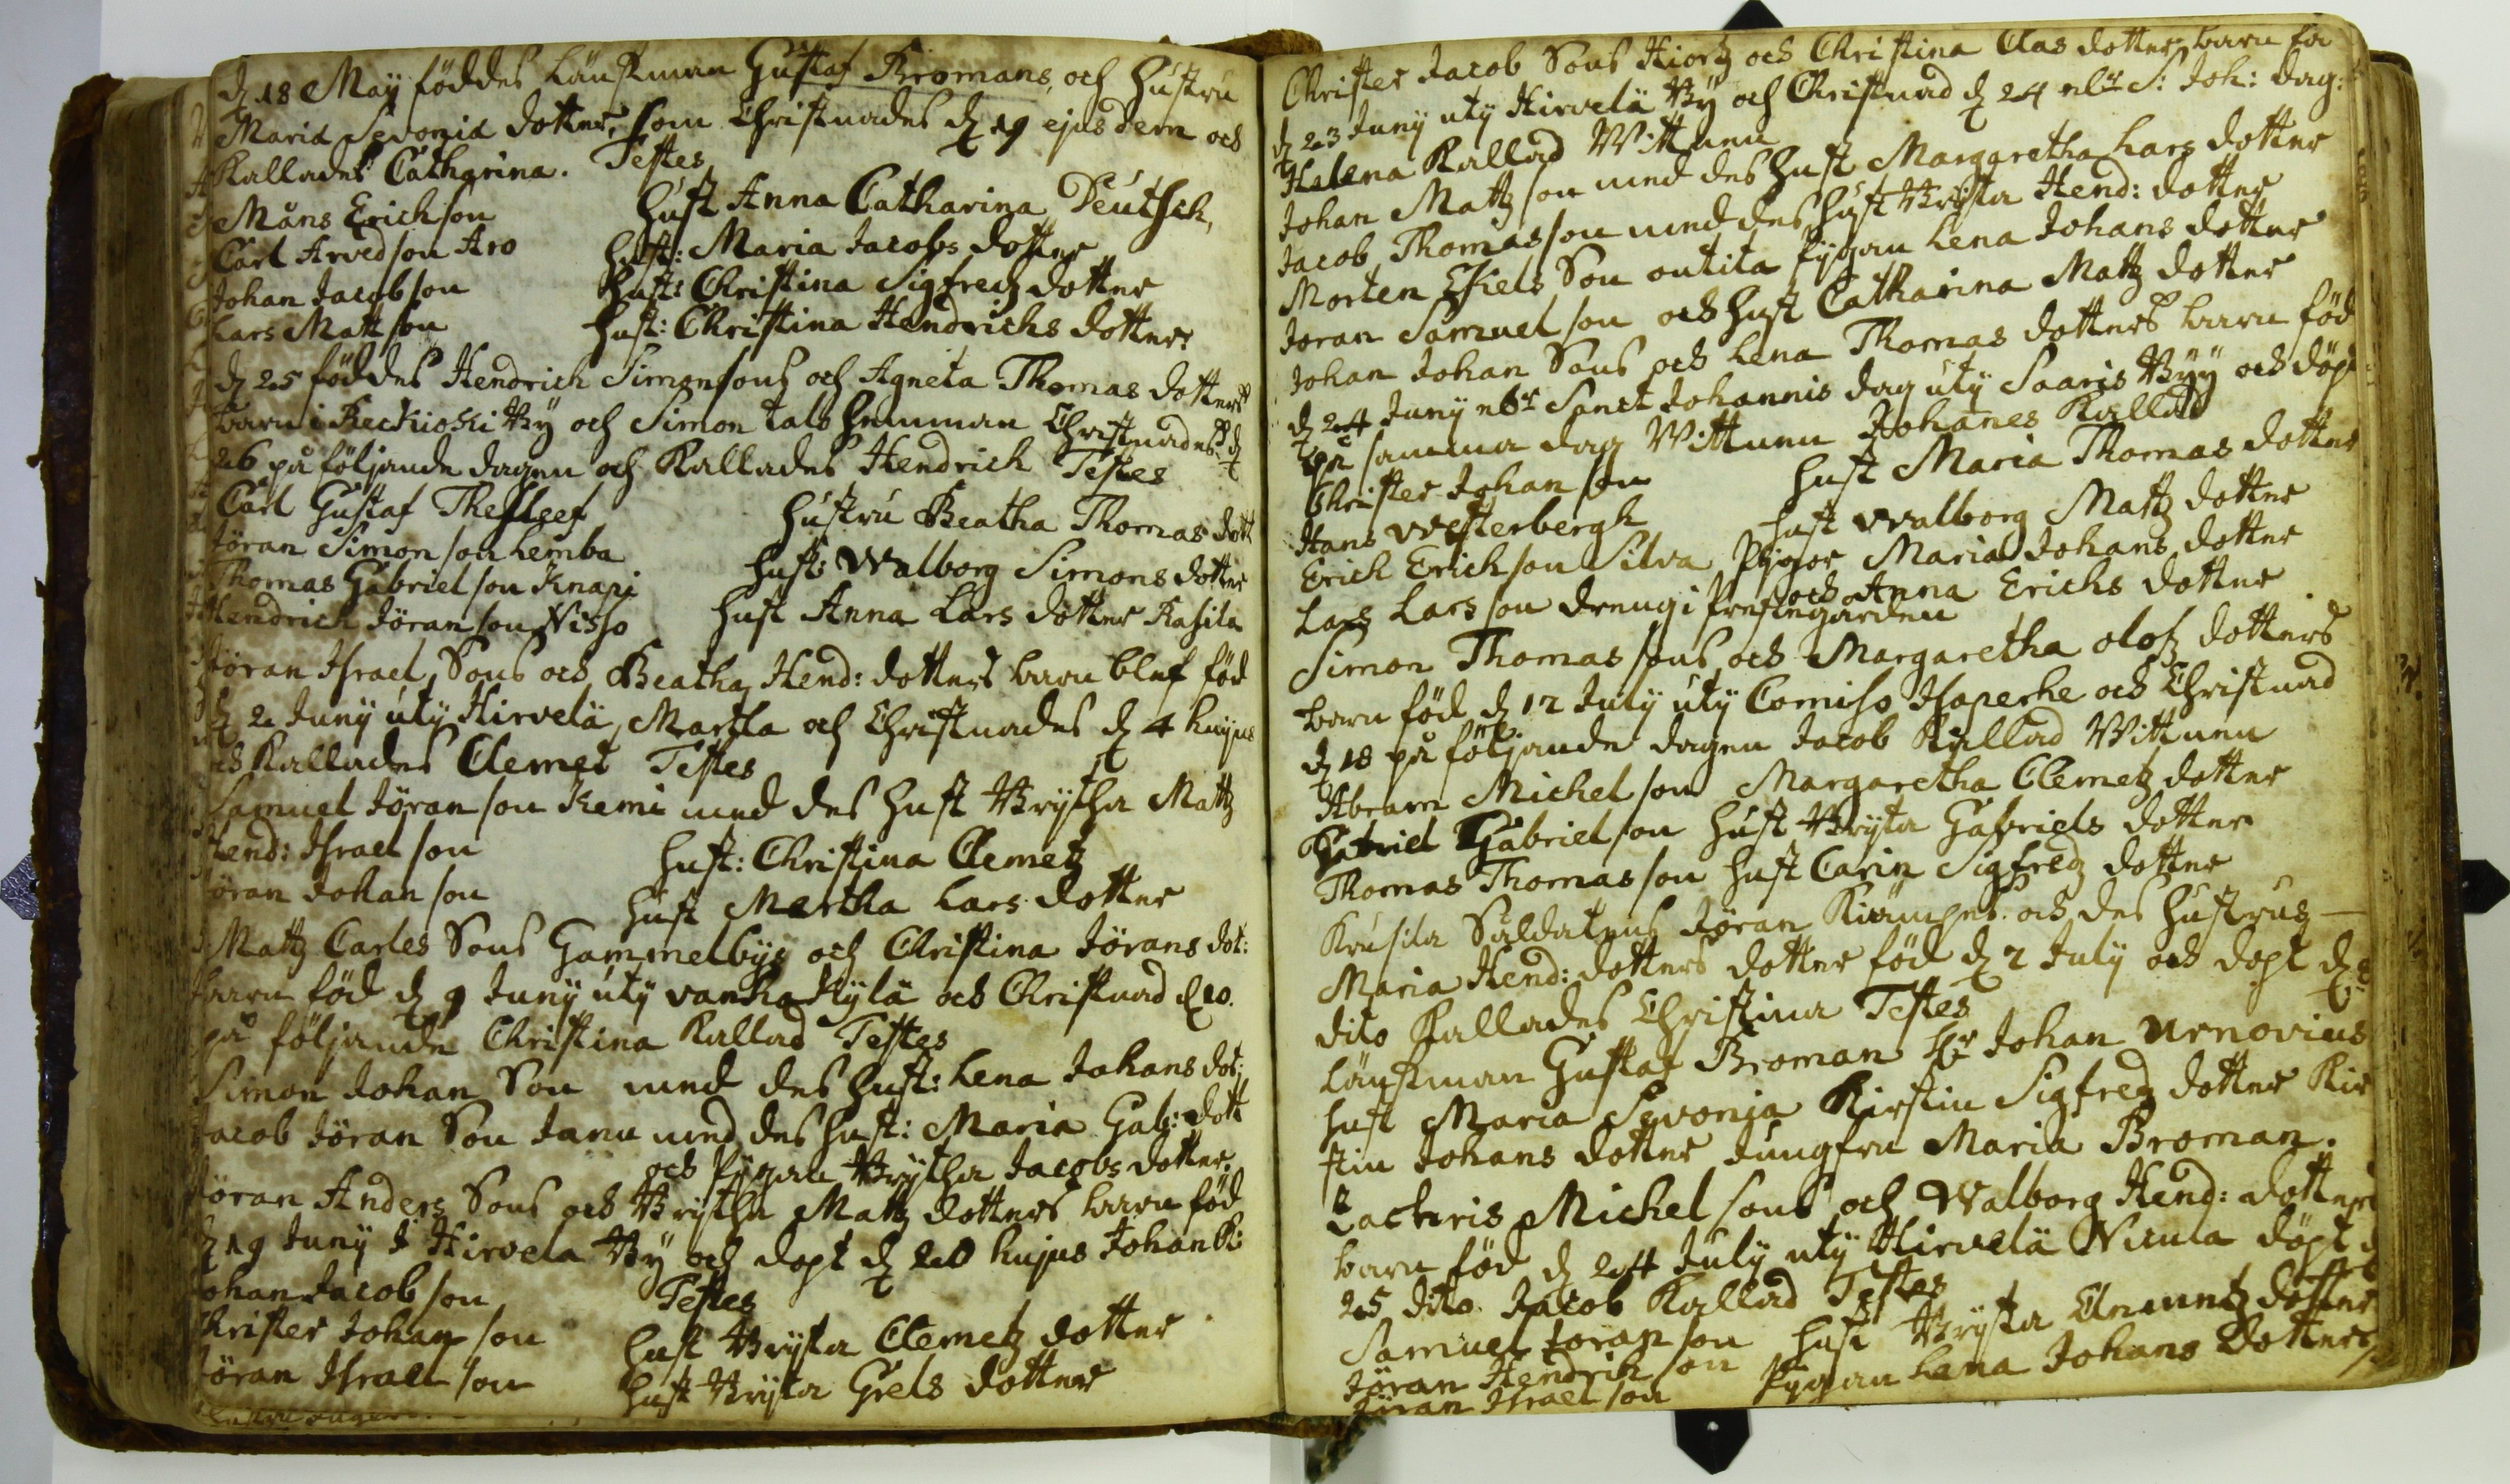 d 18 Maÿ föddes Länsman Gustaf Bromans, och hustru
Maria Sevonia dotter, som Christnades d 19 ejusdem och
Kallades Catharina. Testes
Måns Erichson hust Anna Catharina Deutsch,
Carl Arvedson Aro hust: Maria Jacobs dotter
Johan Jacobson hust: Christina Sigfredz dotter
Lars Mattson hust: Christina Hendrichs dotter
d 25 föddes Hendrich Simonsons och Agneta Thomas dotters
barn i Keckioski Bÿ och Simontals hemman Christnades d
26 på följande dagen och Kallades Hendrich Testes
Carl Gustaf Thesleef hustru Beatha Thomas dott
Jöran Simonson Lemba hust: Walborg Simons dotter
Thomas Gabrielson Knapi hust Anna Lars dotter Kasila
Hendrich Jöranson Nisso
Jöran Israel Sons och Beatha Hend: dotters barn blef född
d 2 Junÿ utÿ Hirvelä, Martla och Christnades d 4 hujus
och Kallades Clemet Testes
Samuel Jöranson Kemi med des hust Brÿtha Mattz
Hend: Israelson hust: Christina Clemetz
Jöran Johanson hust Mertha Lars dotter
Mattz Carles Sons Gammelbÿs och Christina Jörans dot:
barn föd d 9 Junÿ utÿ vanhakÿlä och Christnad d 10.
på följande Christina Kallad Testes
Simon Johan Son med des hust: Lena Johans dot:
Jacob Jöran Son Janu med des hust: Maria Gab: dott
och Pÿgan Brÿtha Jacobs dotter.
Jöran Anders Sons och Brÿtha Mattz dotters barn föd
d 19 Junÿ i Hirvela Bÿ och dopt d 20 hujus Johan K:
Johan Jacobson Testes
Christer Johanson hust Brÿta Clemetz dotter
Jöran Israelson hust Brÿta Grels dotter
Christer Jacob Sons Hiortz och Christina Clas dotters barn fö
d 23 Junÿ utÿ Hirvelä Bÿ och Christnad d 24 S: Joh: dag:
Helena Kallad Wittnen
Johan Mattzson med des hust Margaretha Lars dotter
Jacob Thomasson med des hust Brÿta Hend: dotter
Morten Eskels Son outila Pÿgan Lena Johans dotter
Joran Samuelson och hust Catharina Mattz dotter
Johan Johan Sons och Lena Thomas dotters barn föd
d 24 Junÿ Sanct Johannis dag utÿ Saaris Bÿÿ och döpt
på samma dag Wittnen Johanes Kallad
Christer Johanson hust Maria Thomas dotter
Hans Westerbergh hust Walborg Mattz dotter
Erich Erichson Silva Pÿgor Maria Johans dotter
Lars Larson dreng i Prestegården och Anna Erichs dotter
Simon Thomassons och Margaretha olofz dotters
barn föd d 17 Julÿ utÿ Comiso Haperhe och Christnad
d 18 på följande dagen Jacob Kallad Wittnen
Abram Michelson Margaretha Clemetz dotter
Gabriel Gabrielson hust Brÿta Gabriels dotter
Thomas Thomasson hust Carin Sigfredz dotter
Krusila Saldatens Jöran Kiämpes och des hustrus —
Maria Hend: dotters dotter föd d 2 Julÿ och dopt d
dito Kallades Christina Testes
Länsman Gustaf Broman Hr Johan Urnovius
hust Maria Sevonia Kirstin Sigfredz dotter Kir
stin Johans dotter Jungfru Maria Broman.
Zachris Michelsons och Walborg Hend: dotters
barn föd d 24 Julÿ utÿ Hirvelä Nicula döpt d
25 dito Jacob Kallad Testes
Samuel Joranson hust Brÿta Clemetz dotter
Jöran Hendrichson Pÿgan Lena Johans dotter
Jöran Israelson